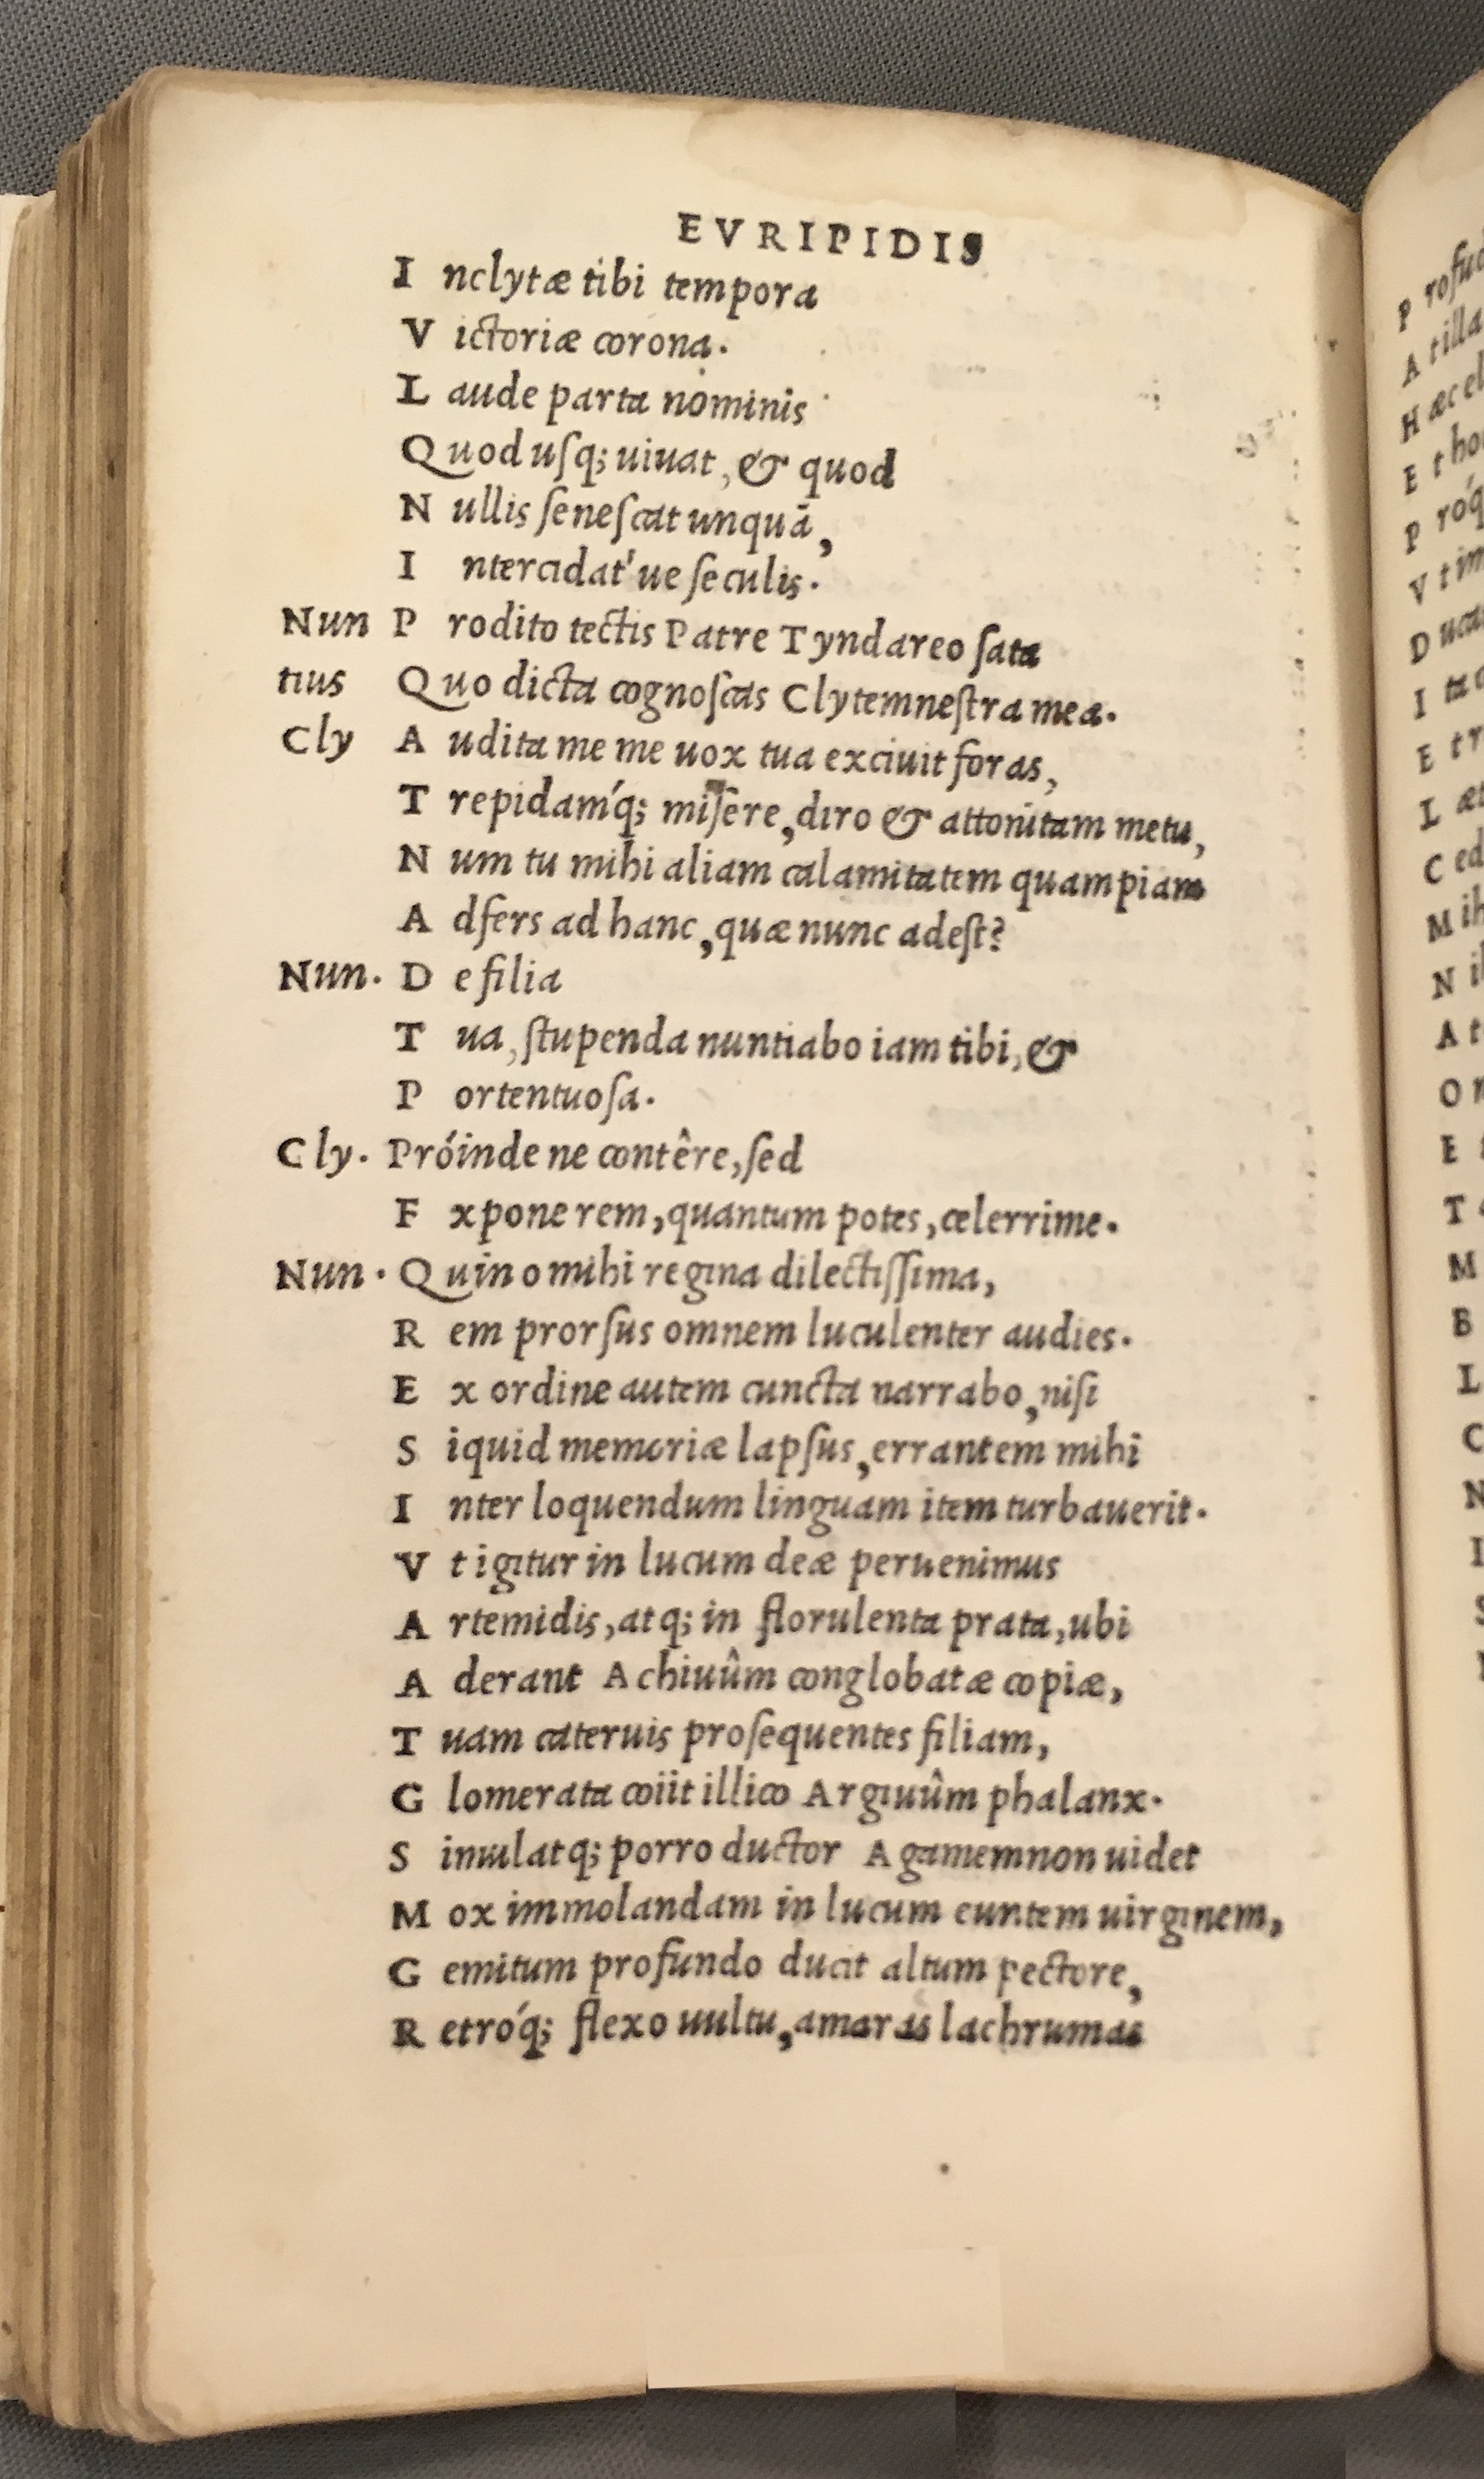 EVRIPIDIS
I nclytæ tibi tempora
V ictoriæ corona.
L aude parta nominis
Q uod uſq; uiuat, & quod
N ullis ſeneſcat unquā,
I ntercidat'ue ſeculis.
Nun P rodito tectis Patre Tyndareo ſata
tius Q uo dicta cognoſcas Clytemneſtra mea.
Cly A udita me me uox tua exciuit foras,
T repidaḿq; miſere, diro & attonitam metu,
N um tu mihi aliam calamitatem quampiam
A dfers ad hanc, quæ nunc adeſt?
Nun. D e filia
T ua, ſtupenda nuntiabo iam tibi, &
P ortentuoſa.
Cly. Próinde ne contêre, ſed
F xpone rem, quantum potes, celerrime.
Nun. Q uin o mihi regina dilectiſſima,
R em prorſus omnem luculenter audies.
E x ordine autem cuncta narrabo, niſi
S iquid memoriæ lapſus, errantem mihi
I nter loquendum linguam item turbauerit.
V t igitur in lucum deæ peruenimus
A rtemidis, atq; in florulenta prata, ubi
A derant Achiuûm conglobatæ copiæ,
T uam cateruis proſequentes filiam,
G lomerata coiit illico Argiuûm phalanx.
S imulatq; porro ductor Agamemnon uidet
M ox immolandam in lucum euntem uirginem,
G emitum profundo ducit altum pectore,
R etróq; flexo uultu, amaras lachrumas
P
A tilla
H
E
P
V
D
I
E
L
C
M
N
A
O
E
T
M
B
L
C
N
I